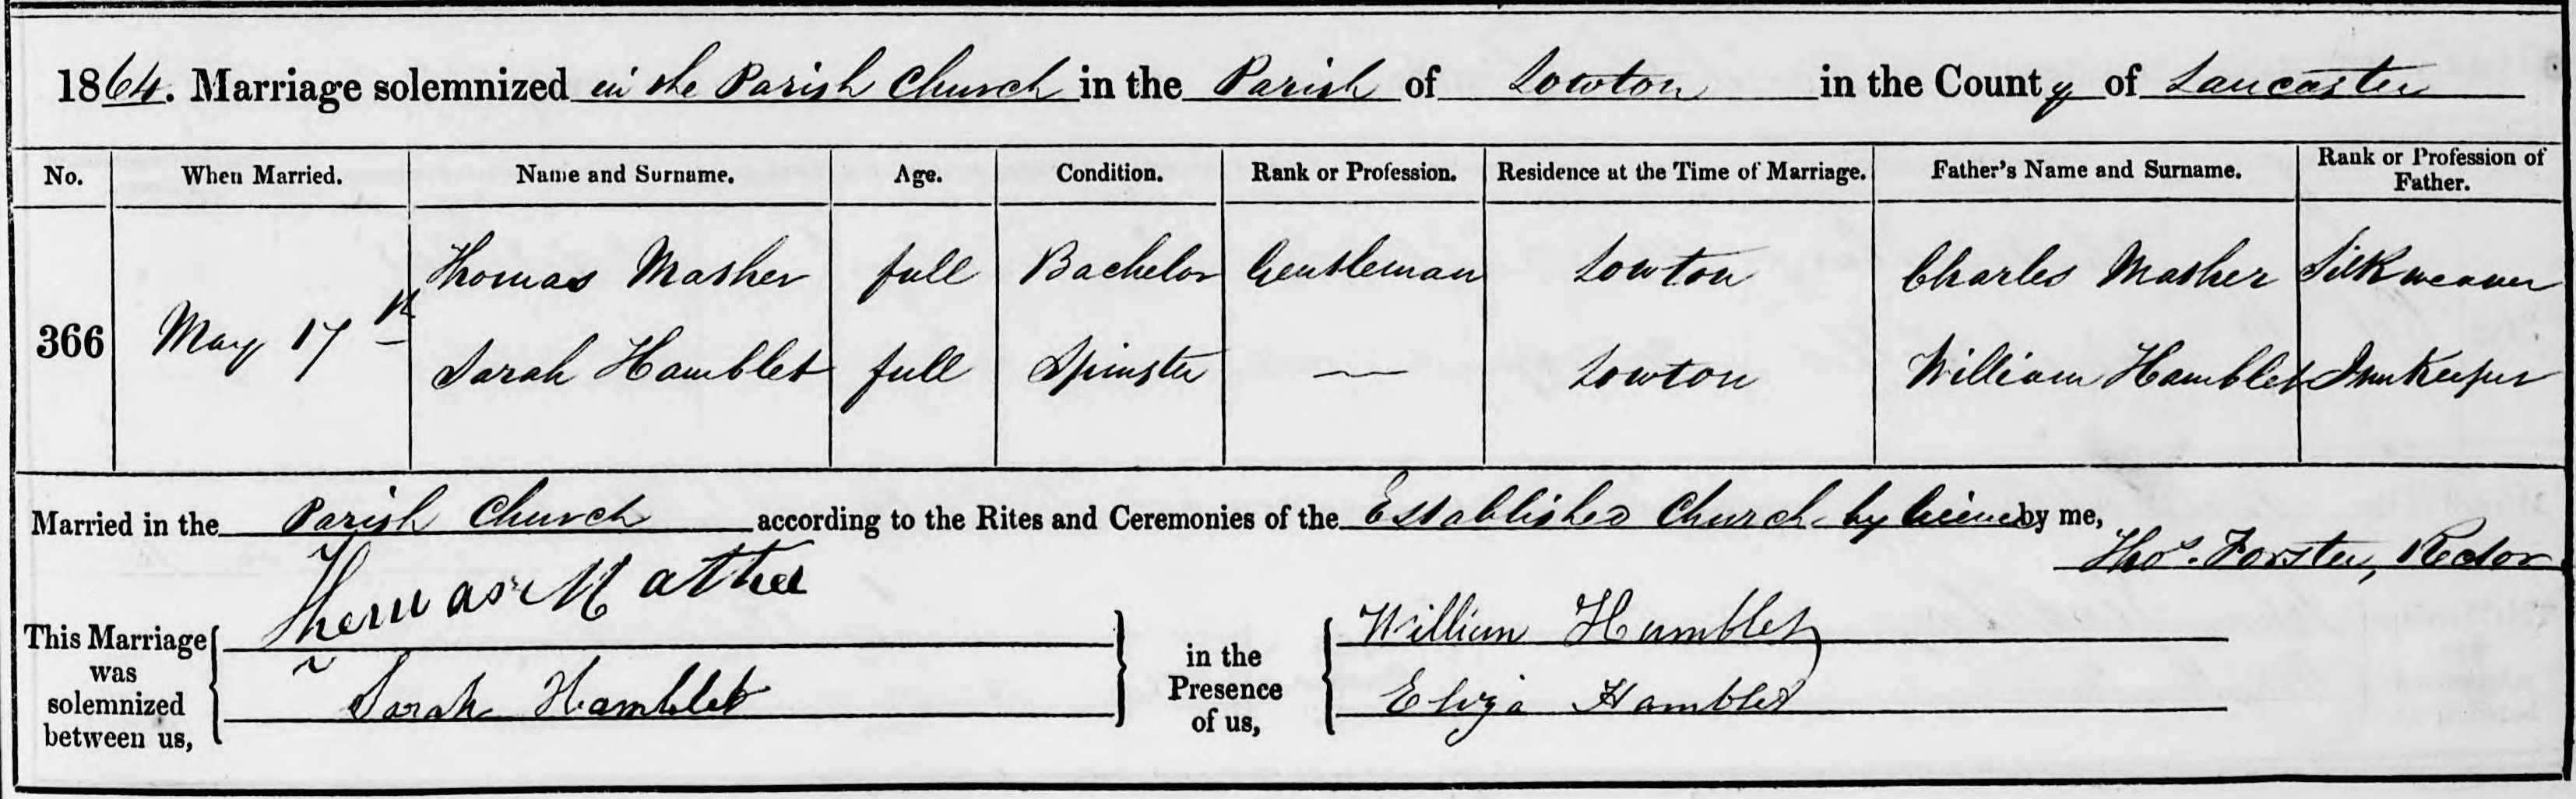 1864. Marriage solemnized in the Parish Church in the Parish of Lowton in the County of Lancaster
No. When Married. Name and Surname. Age. Condition. Rank or Profession. Residence at the Time of Marriage. Father's Name and Surname. Rank or Profession of Father.
366 May 17th
Thomas Mather full Bachelor Gentleman Lowton Charles Mather Silk weaver
Sarah Hamblet full Spinster — Lowton William Hamblet Innkeeper
Married in the Parish Church according to the Rites and Ceremonies of the Established Church by licence by me,
Thos. Forster, Rector
This Marriage was solemnized between us,
Thomas Mather
Sarah Hamblet
in the Presence of us,
William Hamblet
Eliza Hamblet